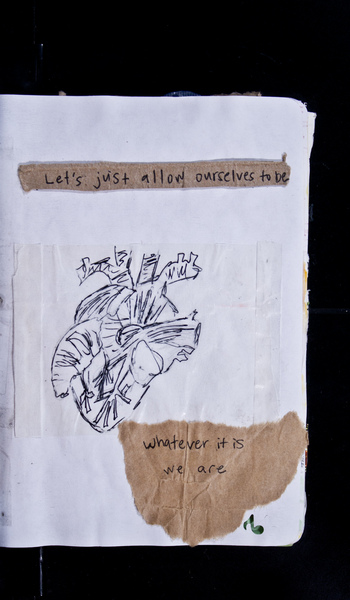 Let's just allow ourselves to be
whatever it is
we are